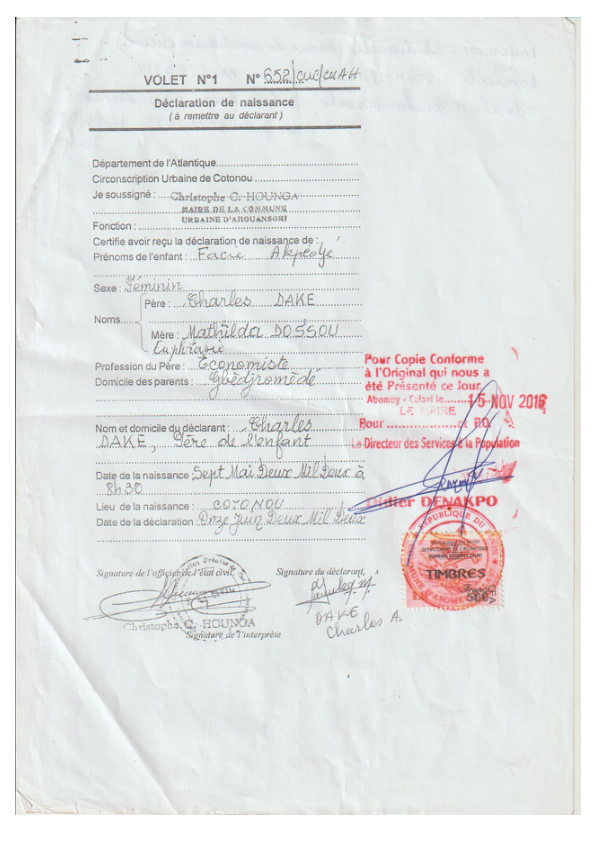 VOLET N°1 N° 652/CUC/CUAH
Déclaration de naissance
( à remettre au déclarant )
Département de l'Atlantique
Circonscription Urbaine de Cotonou
Je soussigné : Christophe C. HOUNGA
MAIRE DE LA COMMUNE
URBAINE D'AHOUANSORI
Fonction :
Certifie avoir reçu la déclaration de naissance de :
Prénoms de l'enfant :
Sexe : Féminin
Père : Charles DAKE
Noms
Mère : Mathilda DOSSOU
Euphrasie
Profession du Père : Economiste
Domicile des parents : Gbèdjromèdé
Nom et domicile du déclarant : Charles
DAKE, Père de l'enfant
Date de la naissance : Sept Mai Deux Mil Deux à
8h30
Lieu de la naissance : COTONOU
Date de la déclaration : Onze Juin Deux Mil Deux
Signature de l'officier de l'état civil,
Signature du déclarant,
Christophe C. HOUNGA
Signature de l'interprète
DAKE
Charles A.
Pour Copie Conforme
à l'Original qui nous a
été Présenté ce Jour
Abomey - Calavi le 15 NOV 2016
LE MAIRE
Pour et P.O.
Le Directeur des Services à la Population
Didier DENAKPO
REPUBLIQUE DU BENIN
TIMBRES